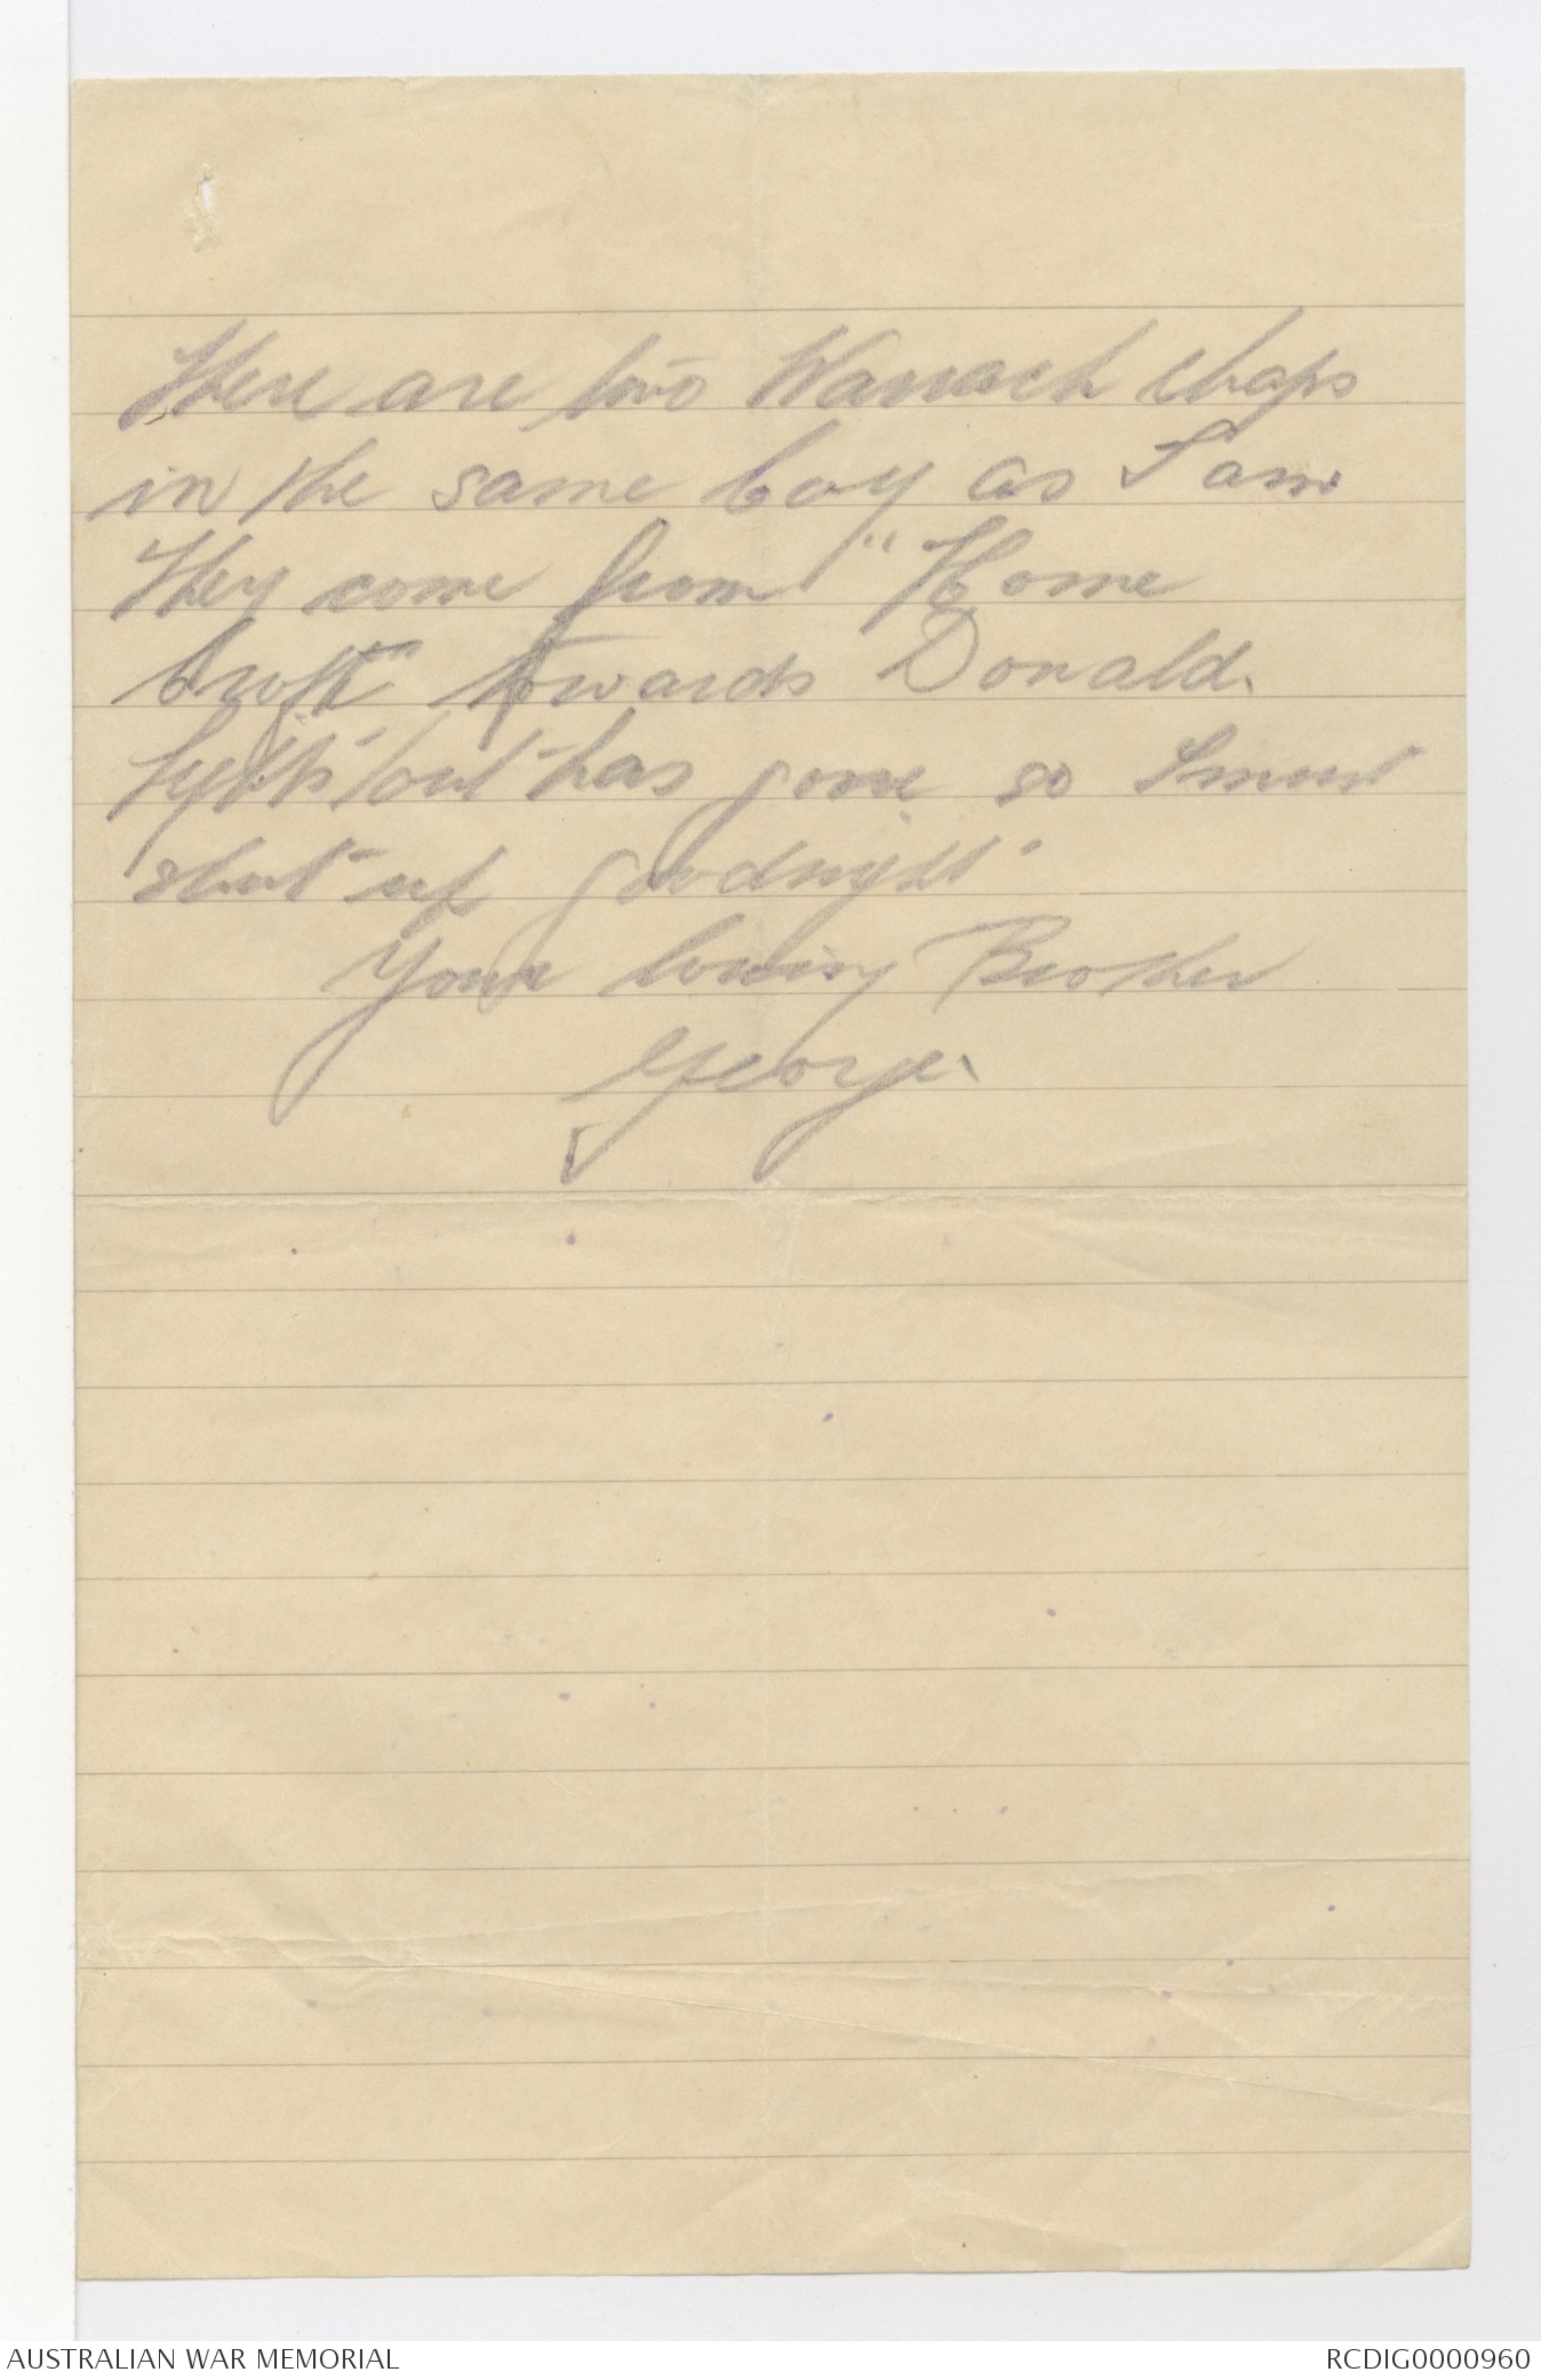 There are two Warrack chaps
in the same boy as I am
They come from "Home
Croft" towards Donald.
Lights out has gone so I must
shut up goodnight.
Your loving Brother
George.
AUSTRALIAN WAR MEMORIAL
RCDIG0000960